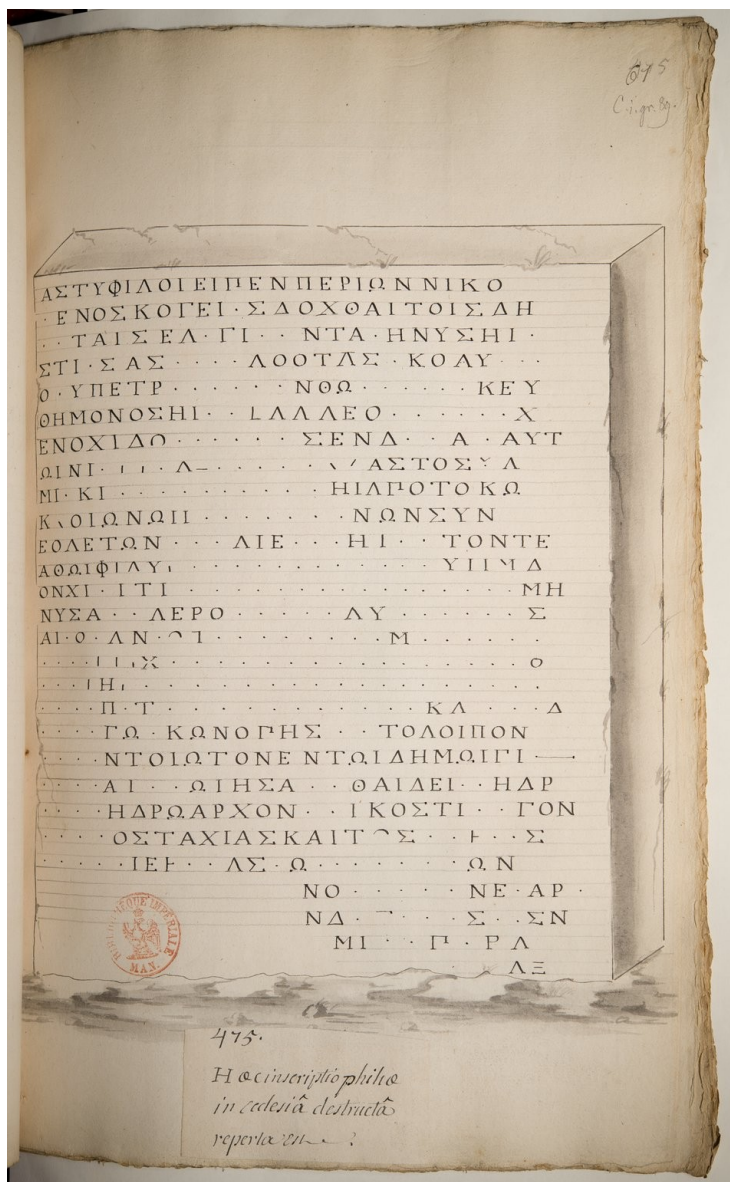 675
C. i. gr. 89.
ΑΣΤΥΦΙΛΟΙΕΙΠΕΝΠΕΡΙΩΝΝΙΚΟ
· ΕΝΟΣΚΟΓΕΙ · ΣΔΟΧΘΑΙΤΟΙΣΔΗ
· · ΤΑΙΣΕΛ · ΓΙ · · ΝΤΑ · ΗΝΥΣΗΙ ·
ΣΤΙ · ΣΑΣ · · · · ΛΟΟΤΛΣ · ΚΟΛΥ · · ·
Ο · ΥΠΕΤΡ · · · · · · ΝΘΩ · · · · · · ΚΕΥ
ΘΗΜΟΝΟΣΗΙ · · LΛΛΛΕΟ · · · · · · Χ
ΕΝΟΧΙΔΩ · · · · · · ΣΕΝΔ · · Α · ΑΥΤ
ΩΙΝΙ · ΑΣΤΟΣ Λ
ΜΙ · ΚΙ · · · · · · · · · · ΗΙΛΠΟΤΟΚΩ
ΟΙΩΝΩΙΙ · · · · · · · ΝΩΝΣΥΝ
ΕΟΛΕΤΩΝ · · · ΛΙΕ · · · ΗΙ · · ΤΟΝΤΕ
ΑΘΩΙΦΙΛΥ
ΟΝΧΙ · ΙΤΙ · · · · · · · · · · · · · · · · ΜΗ
ΝΥΣΑ · · ΛΕΡΟ · · · · · ΛΥ · · · · · · Σ
ΑΙ · Ο · ΛΝ · Μ · · · · · ·
Χ · · · · · · · · · · · · · · · · Ο
Η
· · · · Π · Τ · · · · · · · · · · · · ΚΛ · · · · Δ
· · · · ΓΩ · ΚΩΝΟΓΗΣ · · ΤΟΛΟΙΠΟΝ
· · · · ΝΤΟΙΩΤΟΝΕΝΤΩΙΔΗΜΩΙΓΙ —
· · · · ΑΙ · · ΩΙΗΣΑ · · ΘΑΙΔΕΙ · · ΗΔΡ
· · · · ΗΔΡΩΑΡΧΟΝ · · ΙΚΟΣΤΙ · · ΓΟΝ
· · · · ΟΣΤΑΧΙΑΣΚΑΙΤ Σ · · Ͱ · · Σ
· · · · · ΙΕͰ · · ΛΣ · Ω · · · · · · · Ω Ν
ΝΟ · · · · · ΝΕ · ΑΡ ·
ΝΔ · Σ · · ΣΝ
ΜΙ · · Γ · ΡΛ
ΛΞ
BIBLIOTHÈQUE IMPÉRIALE
MAN.
475.
Hæc inscriptio philiæ
in ecclesiâ destructâ
reperta est ?